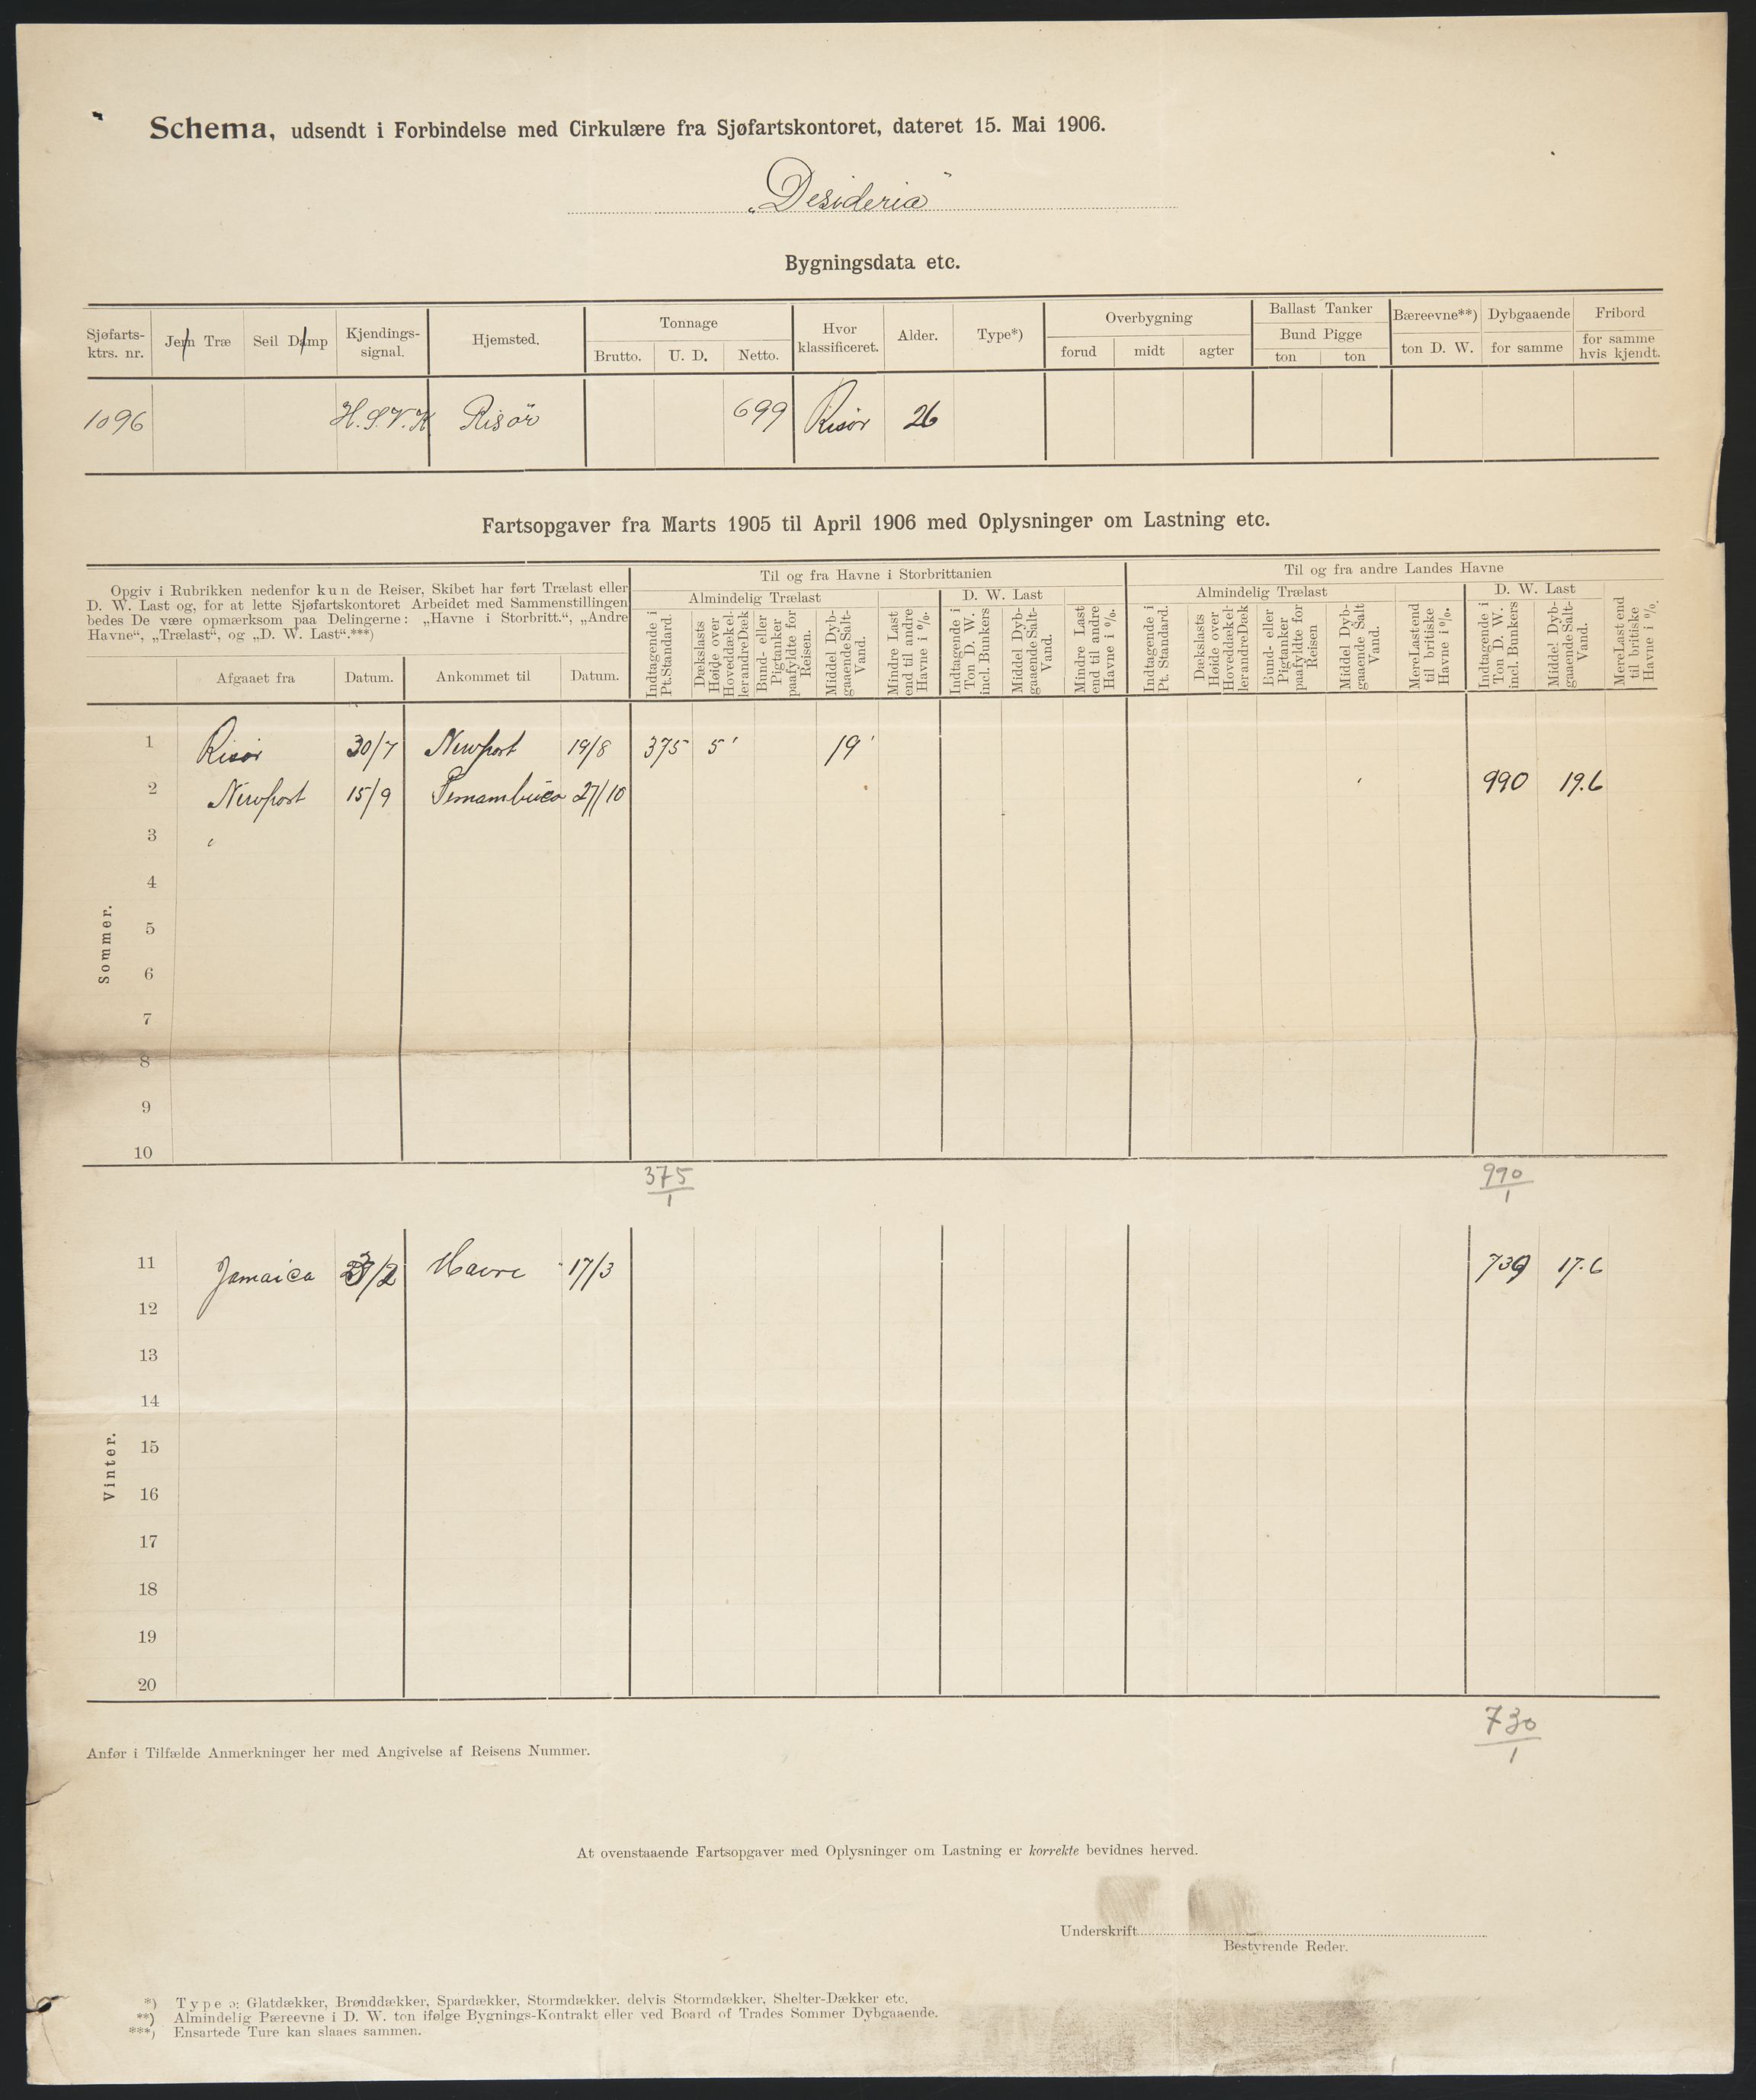 Schema, udsendt i Forbindelse med Cirkulære fra Sjøfartskontoret, dateret 15. Mai 1906.
„Desideria"
Bygningsdata etc.
Sjøfarts-ktrs. nr. Jern Træ Seil Damp Kjendings-signal. Hjemsted. Tonnage Brutto. U. D. Netto. Hvor klassificeret. Alder. Type*) Overbygning forud midt agter Ballast Tanker Bund Pigge ton ton Bæreevne**) ton D. W. Dybgaaende for samme Fribord for samme hvis kjendt.
1096 H.S.V.K Risör 699 Risör 26
Fartsopgaver fra Marts 1905 til April 1906 med Oplysninger om Lastning etc.
Opgiv i Rubrikken nedenfor kun de Reiser, Skibet har ført Trælast eller
D. W. Last og, for at lette Sjøfartskontoret Arbeidet med Sammenstillingen
bedes De være opmærksom paa Delingerne: „Havne i Storbritt.“, „Andre
Havne“, „Trælast“, og „D. W. Last“.***)
Afgaaet fra Datum. Ankommet til Datum.
Til og fra Havne i Storbrittanien
Almindelig Trælast
Indtagende i Pt. Standard.
Dækslasts Høide over Hoveddækel-lerandreDæk
Bund- eller Pigtanker paafyldte for Reisen.
Middel Dyb-gaaende Salt-Vand.
Mindre Last end til andre Havne i %.
D. W. Last
Indtagende i Ton D. W. incl. Bunkers
Middel Dyb-gaaende Salt-Vand.
Mindre Last end til andre Havne i %.
Til og fra andre Landes Havne
Almindelig Trælast
Indtagende i Pt. Standard.
Dækslasts Høide over Hoveddækel-lerandreDæk
Bund- eller Pigtanker paafyldte for Reisen
Middel Dyb-gaaende Salt Vand.
MereLastend til britiske Havne i %.
D. W. Last
Indtagende i Ton D. W. incl. Bunkers
Middel Dyb-gaaende Salt-Vand.
MereLast end til britiske Havne i %.
Sommer.
1 Risör 30/7 Newport 19/8 375 5' 19'
2 Newport 15/9 Pernambuco 27/10 990 19.6
3
4
5
6
7
8
9
10
375/1 990/1
Vinter.
11 Jamaica /2 Havre 17/3 730 17.6
12
13
14
15
16
17
18
19
20
730/1
Anfør i Tilfælde Anmerkninger her med Angivelse af Reisens Nummer.
At ovenstaaende Fartsopgaver med Oplysninger om Lastning er korrekte bevidnes herved.
Underskrift
Bestyrende Reder.
*) Type ɔ: Glatdækker, Brønddækker, Spardækker, Stormdækker, delvis Stormdækker, Shelter-Dækker etc.
**) Almindelig Pæreevne i D. W. ton ifølge Bygnings-Kontrakt eller ved Board of Trades Sommer Dybgaaende.
***) Ensartede Ture kan slaaes sammen.